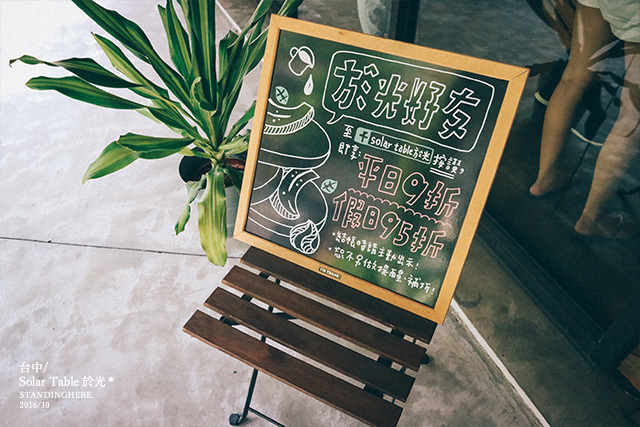 於光好友
至 f solar table於光 按讚,
即享:
平日9折
假日95折
*結帳時請主動出示!
台中/
Solar Table 於光*
STANDINGHERE.
2016/10